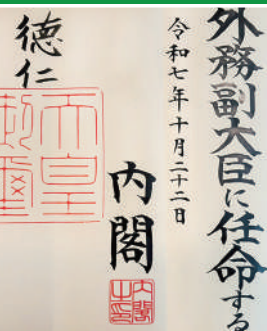 外務副大臣に任命する
令和七年十月二十二日
内閣
内閣之印
徳仁
天皇御璽